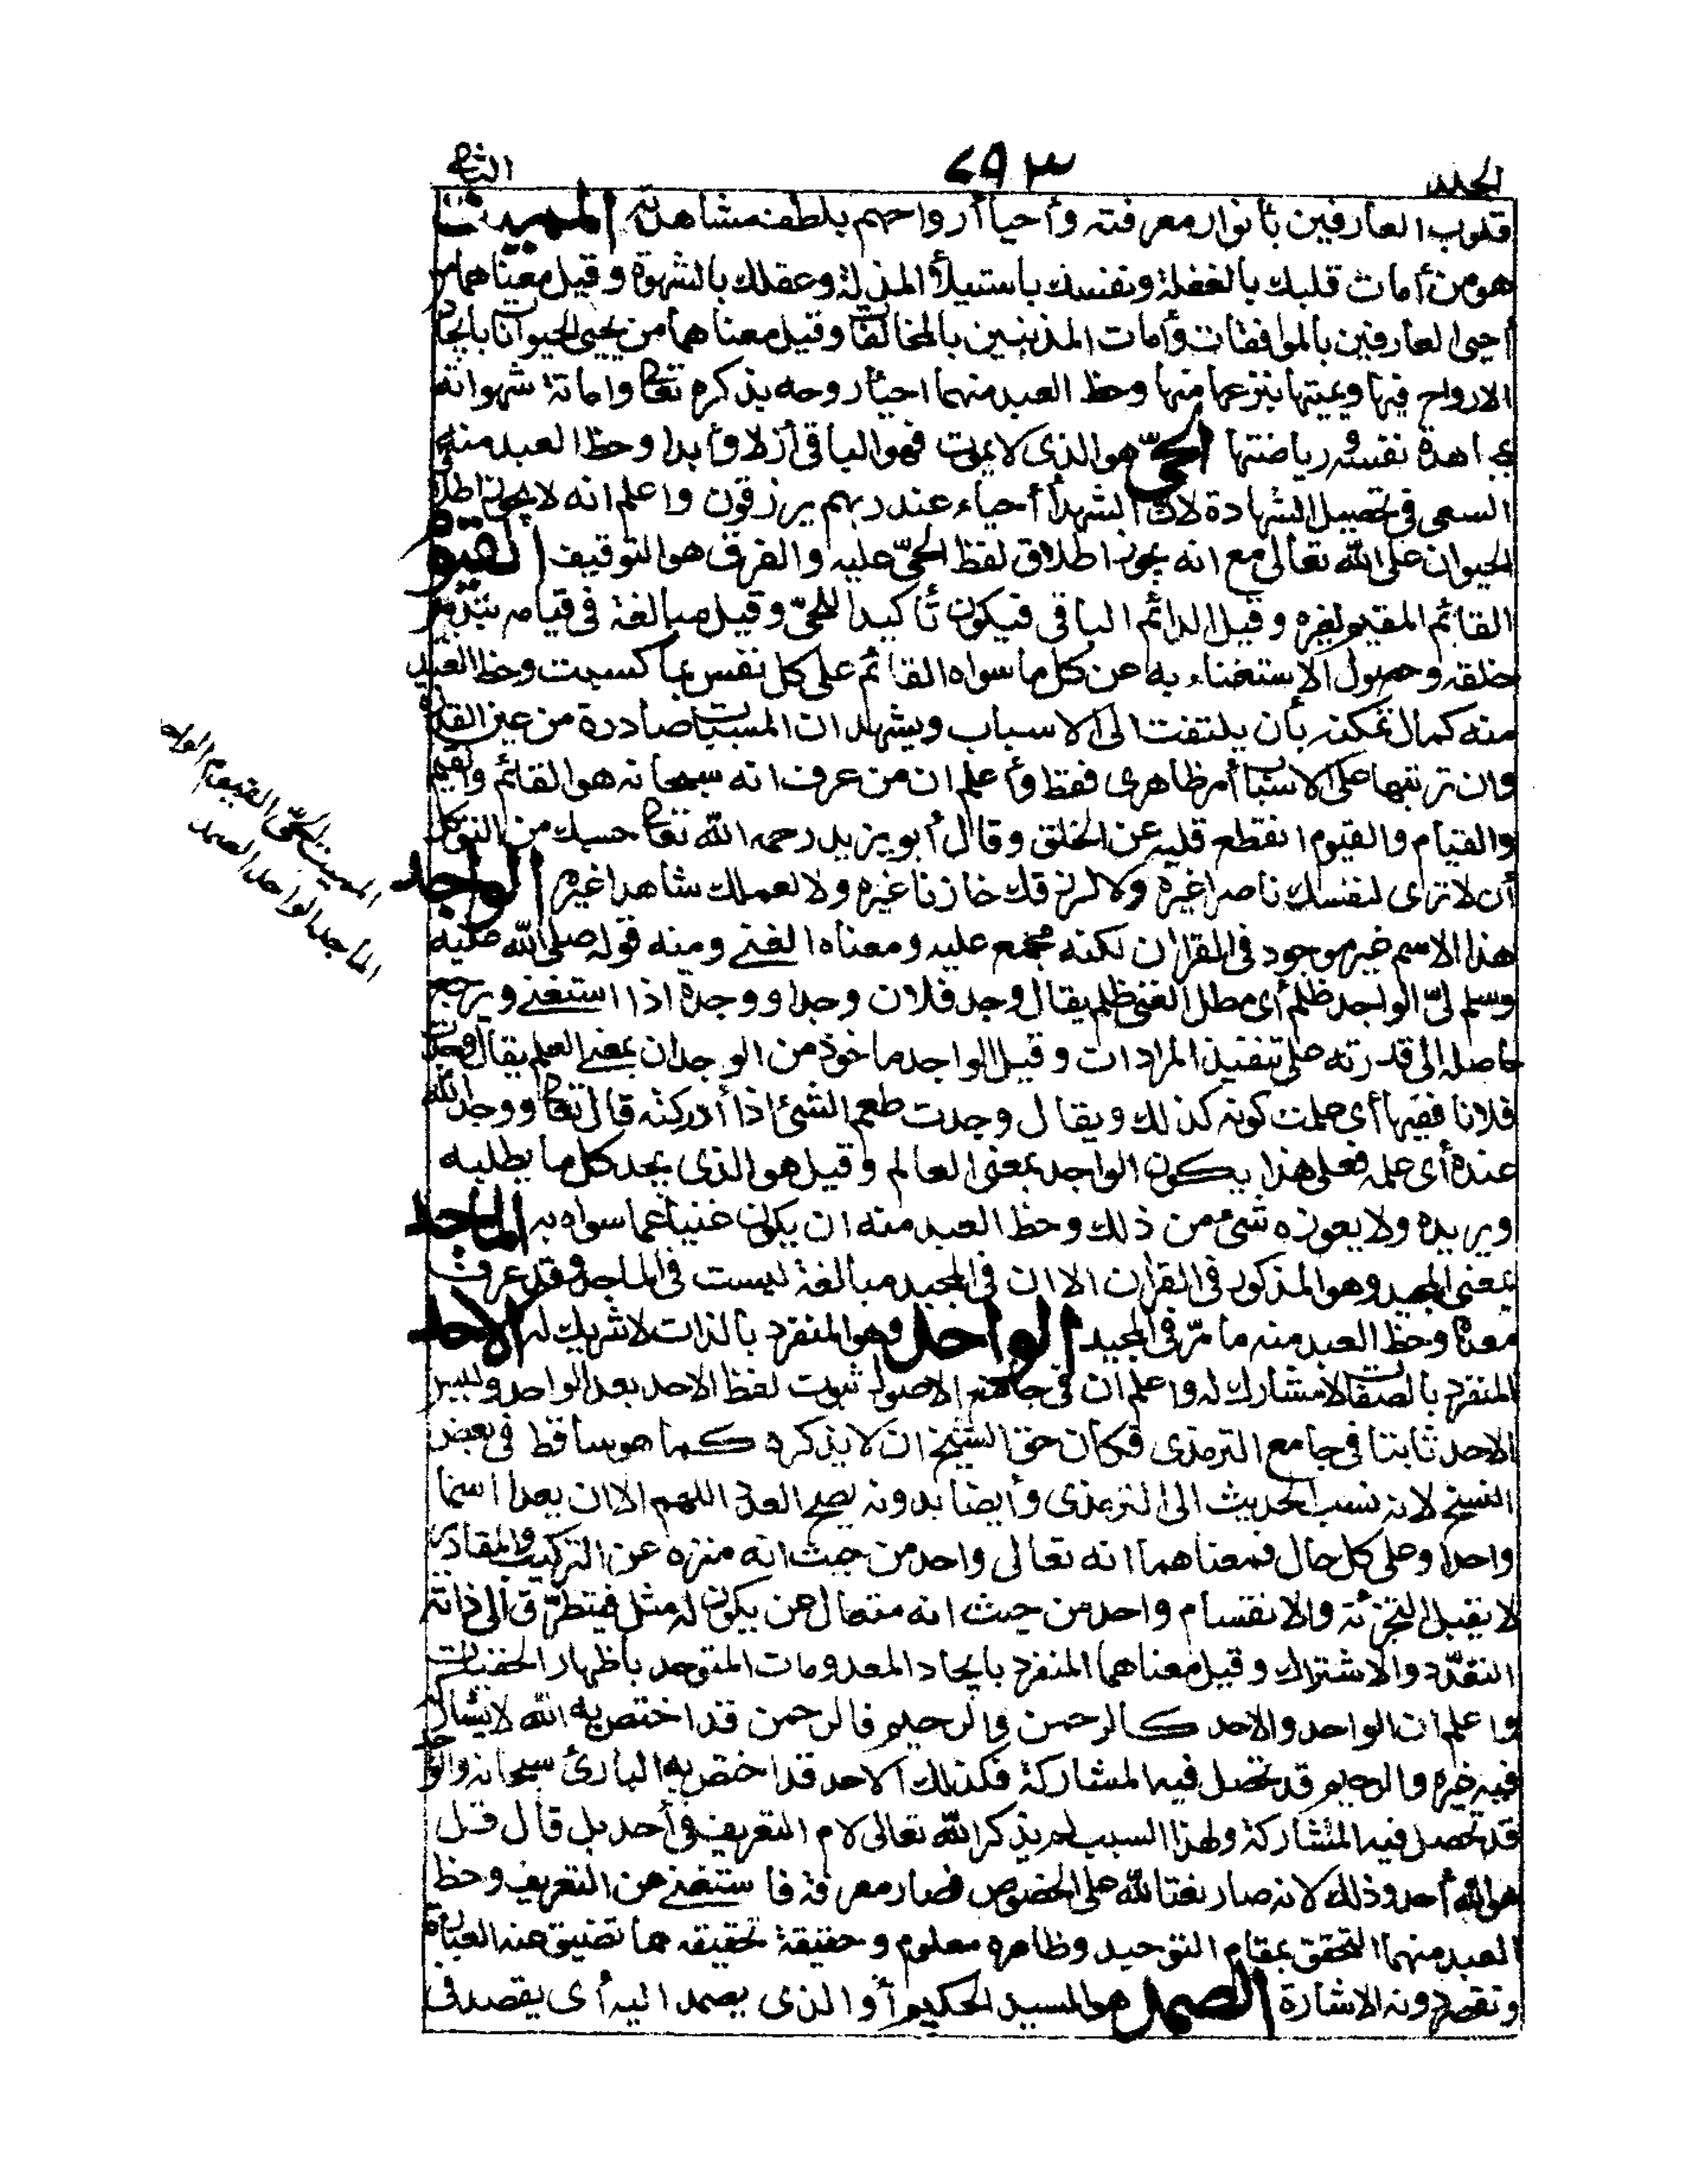 الجلد ٢٩٣ الثانى
قلوب العارفين بأنوار معرفته وأحيا أرواحهم بلطف مشاهدته المميت
هو من أمات قلبك بالغفلة ونفسك باستيلأ المذلة وعقلك بالشهوة وقيل معناهما من
أحيى العارفين بالموافقات وأمات المذنبين بالمخالفات وقيل معناهما من يحيى الحيوانات بايجاد
الارواح فيها ويميتها بنزعها منها وحظ العبد منهما احيأ روحه بذكره تعالى واماتة شهواته
بمجاهدة نفسه ورياضتها الحىّ هو الذى لا يموت فهو الباقى أزلا وأبدا وحظ العبد منه
السعى فى تحصيل الشهادة لان الشهدأ أحياء عند ربهم يرزقون واعلم انه لا يجوز اطلاق
الحيوان على الله تعالى مع انه يجوز اطلاق لفظ الحىّ عليه والفرق هو التوقيف القيوم
القائم المقيم لغيره وقيل الدائم الباقى فيكون تأكيدا للحىّ وقيل مبالغة فى قيامه بتدبير
خلقه وحصول الاستغناء به عن كل ما سواه القائم على كل نفس بما كسبت وحظ العبد
منه كمال تمكنه بأن يلتفت الى الاسباب ويشهد ان المسببات صادرة من عين القدرة
وان ترتبها على الاسباب أمر ظاهرى فقط وأعلم ان من عرف انه سبحانه هو القائم والقيم
والقيام والقيوم انقطع قلبه عن الخلق وقال أبو يزيد رحمه الله تعالى حسبك من التوكل
أن لا ترى لنفسك ناصرا غيره ولا لرزقك خازنا غيره ولا لعملك شاهدا غيره الواجد
هذا الاسم غير موجود فى القرآن لكنه مجمع عليه ومعناه الغنى ومنه قوله صلى الله عليه
وسلم لىّ الواجد ظلم أى مطل الغنى ظلم يقال وجد فلان وجدا ووجدة اذا استغنى ويرجع
حاصله الى قدرته على تنفيذ المرادات وقيل الواجد ماخوذ من الوجدان بمعنى العلم يقال وجدت
فلانا فقيها أى علمت كونه كذلك ويقال وجدت طعم الشئ اذا أدركته قال تعالى ووجد الله
عنده أى علمه فعلى هذا يكون الواجد بمعنى العالم وقيل هو الذى يجد كل ما يطلبه
ويريده ولا يعوزه شئ من ذلك وحظ العبد منه ان يكون غنيا عما سواه به الماجد
بمعنى المجيد وهو المذكور فى القرآن الا ان فى المجيد مبالغة ليست فى الماجد وقد عرفت
معناه وحظ العبد منه ما مرّ فى المجيد الواحد وهو المنفرد بالذات لا شريك له الاحد
المنفرد بالصفات لا مشارك له واعلم ان فى جامع الاصول ثبوت لفظ الاحد بعد الواحد وليس
الاحد ثابتا فى جامع الترمذى فكان حق الشيخ ان لا يذكره كما هو ساقط فى بعض
النسخ لانه نسب الحديث الى الترمذى وأيضا بدونه يصح العدّ اللهم الا ان يعدا اسما
واحدا وعلى كل حال فمعناهما انه تعالى واحد من حيث انه منزه عن التركيب والمقادير
لا يقبل التجزئة والانقسام واحد من حيث انه متعال عن يكون له مثل فيتطرّق الى ذاته
التعدّد والاشتراك وقيل معناهما المنفرد بايجاد المعدومات المتوحد باظهار الخفيات
واعلم ان الواحد والاحد كالرحمن والرحيم فالرحمن قد اختص به الله لا يشاركه
فيه غيره والرحيم قد تحصل فيه المشاركة فكذلك الاحد قد اختص به البارئ سبحانه والواحد
قد تحصل فيه المشاركة ولهذا السبب لم يذكر الله تعالى لام التعريف فى أحد بل قال قل
هو الله أحد وذلك لانه صار نعتا لله على الخصوص فصار معرفة فاستغنى عن التعريف وحظ
العبد منهما التحقق بمقام التوحيد وظاهره معلوم وحقيقة تحقيقه مما تضيق عنه العبارة
وتقصر دونه الاشارة الصمد هو السيد الحكيم أو الذى يصمد اليه أى يقصد فى
المميت الحىّ القيوم الواجد
الماجد الواحد الصمد